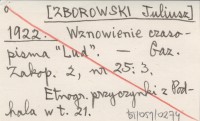 [ZBOROWSKI Juliusz]
1922. Wznowienie czaso-
pisma "Lud". — Gaz.
Zakop. 2, nr 25: 3.
Etnogr. przyczynki z Pod-
hala w t. 21.
bij057/0274